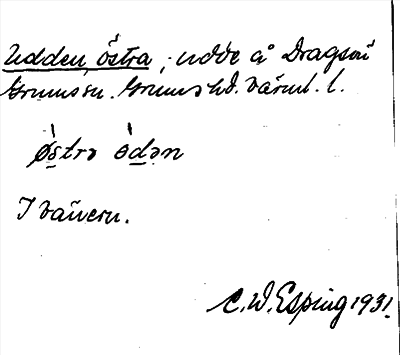 Udden, Östra, udde å Dragsnö
Grums sn. Grums hd. Värml. l.
östrə ödən
I Vänern.
C. W. Esping 1931.